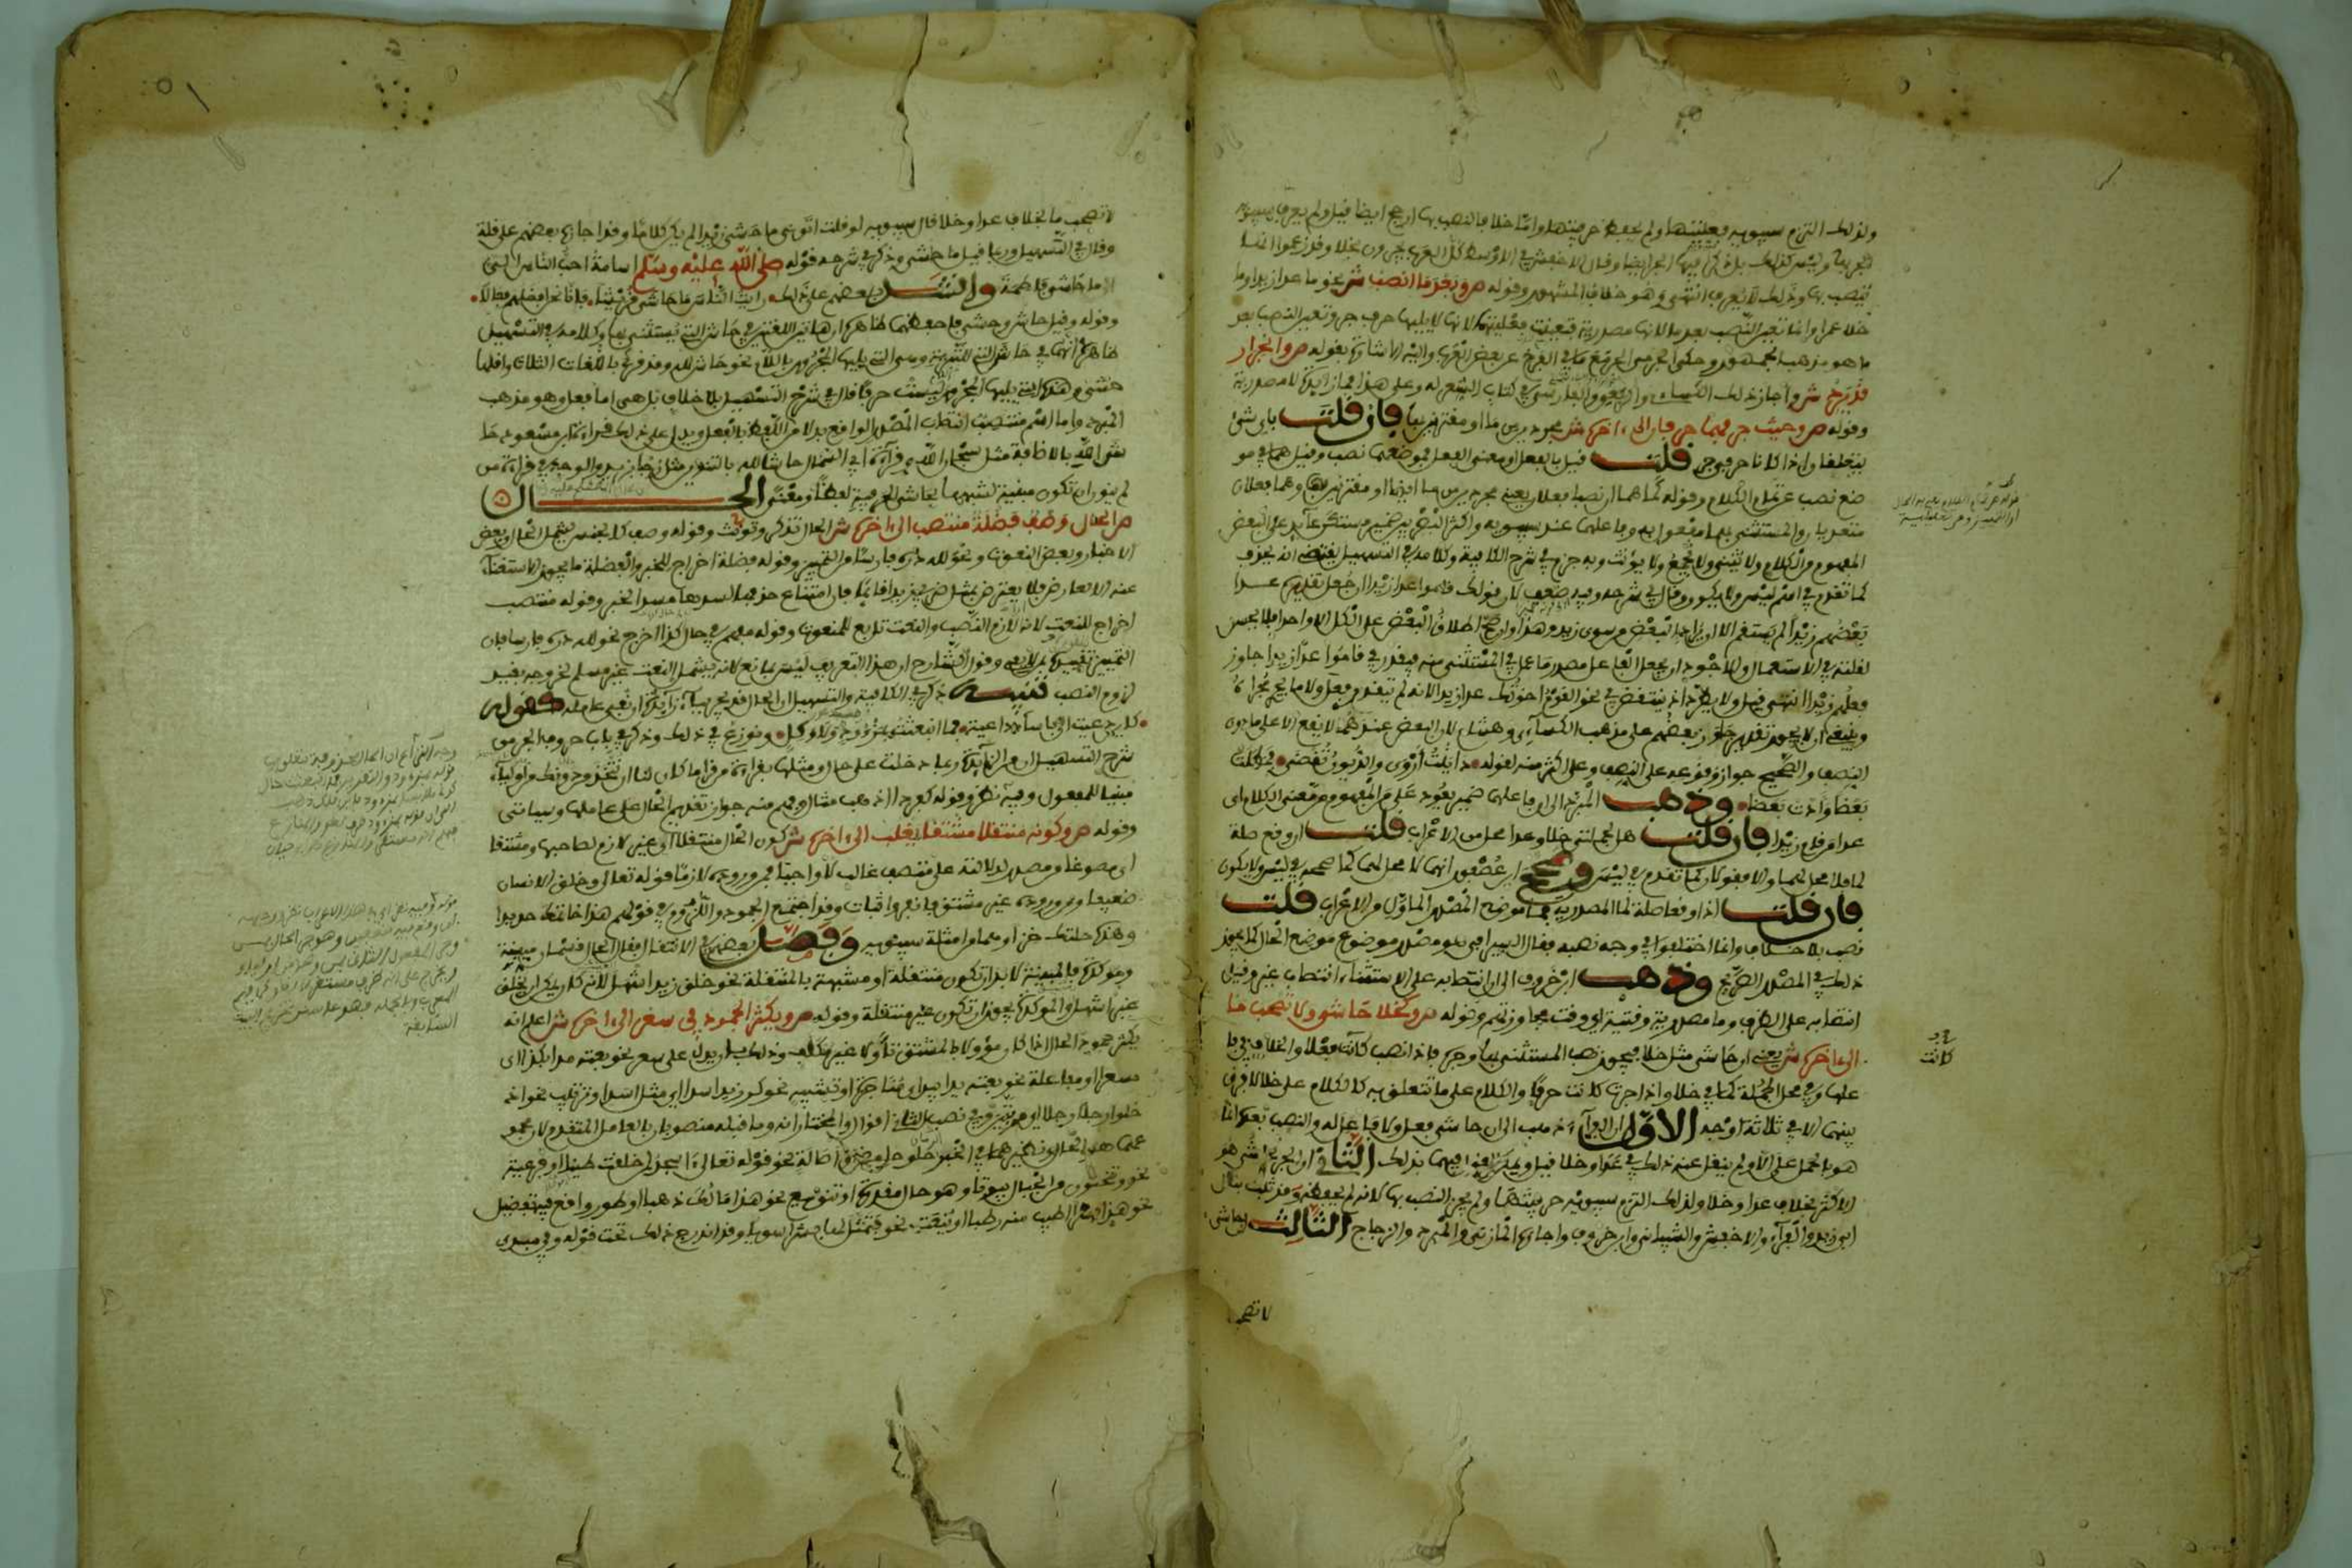 ولذلك التزم سيبويه فعليتها ولم يحفظ حرفيتها واما خلا فالنصب بها ارجح ايضا قيل ولم يعرف سيبويه
الجر بها وليس كذلك بل ذكر فيها الجر ايضا وقال الاخفش في الاوسط كل العرب يجرون بخلا وقد زعموا انها
ينصب بها وذلك لا يعرف انتهى وهو خلاف المشهور وقوله ص وبعد ما انصب ش نحو ما عدا زيدا وما
خلا عمرا وانما تعين النصب بعد ما لانها مصدرية فتعينت فعليتها لانها لا يليها حرف جر وتعين النصب بعد
ما هو مذهب الجمهور وحكى الجرمي الجر مع ما في الفرخ عن بعض العرب واليه الاشارة بقوله ص وانجرار
قد يرد ش واجاز ذلك الكسائي والربعي والفارسي في كتاب الشعر له وعلى هذا فما زايدة لا مصدرية
وقوله ص وحيث جرا فهما حرفان الى اخره ش مجردين من ما او مقترنين بها فان قلت باي شيء
يتعلقان اذا كانا حرفي جر قلت قيل بالفعل او معنى الفعل فموضعهما نصب وقيل هما في مو
ضع نصب عن تمام الكلام وقوله كما هما ان نصبا فعلان يعني مجردين من ما ايضا او مقترنين بها وهما فعلان
متعديان والمستثنى بهما مفعول به وفاعلهما عند سيبويه واكثر البصريين ضمير مستكن عايد على البعض
المفهوم من الكلام ولا يثنى ولا يجمع ولا يؤنث وبه جزم في شرح الكافية وكلامه في التسهيل يقتضي انه يحذف
كما تقدم في اسم ليس ولا يكون وقال في شرحه وفيه ضعف لان قولك قاموا عدا زيدا ان جعل تقديره عدا
بعضهم زيدا لم يستقم الا ان يراد بالبعض من سوى زيد وهذا وان صح اطلاق البعض على الكل الا واحدا فلا يحسن
لقلته في الاستعمال والاجود ان يجعل الفاعل مصدر ما عمل في المستثنى منه فيقدر في قاموا عدا زيدا جاوز
فعلهم زيدا انتهى قيل ولا يطرد اذ ينتقض في نحو القوم اخوتك عدا زيدا لانه لم يتقدم فعل ولا ما يجري مجراه
وينبغي ان لا يجوز تقدير جاوز بعضهم على مذهب الكسائي وهشام لان البعض عندهما لا يقع الا على ما دون
النصف والصحيح جواز وقوعه على النصف وعلى اكثر منه لقوله داينت اروى والديون تقضى فمطلت
بعضا وادت بعضا وذهب المبرد الى ان فاعلهما ضمير يعود على من المفهوم من معنى الكلام اى
عدا من قام زيدا فان قلت هل لجملتي خلا وعدا محل من الاعراب قلت ان وقع صلة
لما فلا محل لهما والا فقولان كما تقدم في ليس وصحح ابن عصفور انها لا محل لها كما صححه في ليس ولا يكون
فان قلت اذا وقعا صلة لما المصدرية فما موضع المصدر الماول من الاعراب قلت
نصب بلا خلاف وانما اختلفوا في وجه نصبه فقال السيرافي هو مصدر موضوع موضع الحال كما يجوز
ذلك في المصدر الصريح وذهب ابن خروف الى ان انتصابه على الاستثناء انتصاب غير وقيل
انتصابه على الظرف وما مصدرية وقتية اي وقت مجاوزتهم وقوله ص وكخلا حاشى ولا تصحب ما
الى اخره ش يعني ان حاشى مثل خلا فيجوز نصب المستثنى بها وجره فاذا نصب كانت فعلا والخلاف في فا
علها وفي محل الجملة كما في خلا واذا جرت كانت حرفا والكلام على ما تتعلق به كالكلام على خلا لا فرق
بينهما الا في ثلاثة اوجه الاول ان الفراء ذهب الى ان حاشى فعل ولا فاعل له والنصب بعده انما
هو بالحمل على الا ولم ينقل عنه ذلك في عدا وخلا قيل ويمكن القول فيهما بذلك الثاني ان الجر بحاشى هو
الاكثر بخلاف عدا وخلا ولذلك التزم سيبويه حرفيتها ولم يجز النصب بها لانه لم يحفظه وقد ثبت بنقل
ابي زيد والفراء والاخفش والشيباني وابن خروف واجازه المازني والمبرد والزجاج الثالث ان حاشى
لا تصحب
كانت
لا تصحب ما بخلاف عدا وخلا قال سيبويه لو قلت اتوني ما حاشى زيدا لم يكن كلاما وقد اجازه بعضهم على قلة
وقال في التسهيل وربما قيل ما حاشى وذكر في شرحه قوله صلى الله عليه وسلم اسامة احب الناس الي
ما حاشى فاطمة وانشد بعضهم على ذلك رايت الناس ما حاشى قريشا فانا نحن افضلهم فعالا
وقوله وقيل حاش وحشى فاحفظهما ظاهره ان هاتين اللغتين في حاشى التي يستثنى بها وكلامه في التسهيل
ظاهره انها في حاشى التي للتنزيه وهي التي يليها المجرور باللام نحو حاش لله وقد قرئ باللغات الثلاث واقلها
حشى وهذه التي يليها المجرور ليست حرفا قال في شرح التسهيل بلا خلاف بل هي اما فعل وهو مذهب
المبرد واما اسم منتصب انتصاب المصدر الواقع بدلا من اللفظ بالفعل ويدل على ذلك قراءة ابن مسعود حا
شى الله بالاضافة مثل سبحان الله وقراءة ابي السمال حاشا لله بالتنوين مثل رعيا لزيد والوجه في قراءة من
لم ينون ان تكون مبنية لشبهها بحاشى الحرفية لفظا ومعنى الحال
ص الحال وصف فضلة منتصب الى اخره ش الحال تذكر وتؤنث وقوله وصف كالجنس يشمل الحال وبعض
الاخبار وبعض النعوت ونحو لله دره فارسا من التمييز وقوله فضلة اخراج للخبر والفضلة ما يجوز الاستغناء
عنه الا لعارض فلا يعترض بمثل ضربي زيدا قائما فان امتناع حذفها لسدها مسد الخبر وقوله منتصب
اخراج للنعت لانه لازم النصب والنعت تابع للمنعوت وقوله مفهم في حال كذا اخرج نحو لله دره فارسا فان
التمييز تقديره من لا في وقول الشارح ان هذا التعريف ليس بمانع لانه يشمل النعت غير مسلم لخروجه بقيد
لزوم النصب تنبيه ذكر في الكافية والتسهيل ان الحال قد يجر بباء زايدة ان نفي عامله كقوله
كاين دعيت الى باساء داهمة فما انبعثت بمزؤود ولا وكل ونوزع في ذلك وذكر في باب حروف الجر من
شرح التسهيل ان من الزايدة ربما دخلت على حال ومثلها بقراءة من قرا ما كان لنا ان نتخذ من دونك من اولياء
مبنيا للمفعول وفيه نظر وقوله كفردا اذهب مثال وفهم منه جواز تقديم الحال على عاملها وسياتي
وقوله ص وكونه منتقلا مشتقا يغلب الى اخره ش كون الحال منتقلا اي غير لازم لصاحبها ومشتقا
اى مصوغا من مصدر للدلالة على متصف غالب لا واجبا فمن وروده لازما قوله تعالى وخلق الانسان
ضعيفا ومن وروده غير مشتق فانفروا ثبات وقد اجتمع الجمود واللزوم في قولهم هذا خاتمك حديدا
وهذه جبتك خزا وهما من امثلة سيبويه وفصل بعضهم في الانتقال فقال الحال قسمان مبينة
وموكدة فالمبينة لا بد ان تكون منتقلة او مشبهة بالمنتقلة نحو خلق زيد اشهل لانه كان يمكن ان يخلق
غير اشهل والموكدة يجوز ان تكون غير منتقلة وقوله ص ويكثر الجمود في سعر الى اخره ش اعلم انه
يكثر جمود الحال اذا كان مؤولا بالمشتق تاولا غير متكلف وذلك بان يدل على سعر نحو بعته مدا بكذا اى
مسعرا او مفاعلة نحو بعته يدا بيد اى مناجزة او تشبيه نحو كر زيد اسدا اي مثل اسد او ترتيب نحو اد
خلوا رجلا رجلا اي مرتبين وفي نصب الثاني اقوال والمختار انه وما قبله منصوبان بالعامل المتقدم لان مجمو
عهما هو الحال ونظيرهما في الخبر حلو حامض او اصالة نحو قوله تعالى ااسجد لمن خلقت طينا او فرعية
نحو وتنحتون من الجبال بيوتا وهو حال مقدرة او تنويع نحو هذا مالك ذهبا او طور واقع فيه تفضيل
نحو هذا بسرا اطيب منه رطبا او ينعت نحو فتمثل لها بشرا سويا وقد اندرج ذلك تحت قوله وفي مبدى